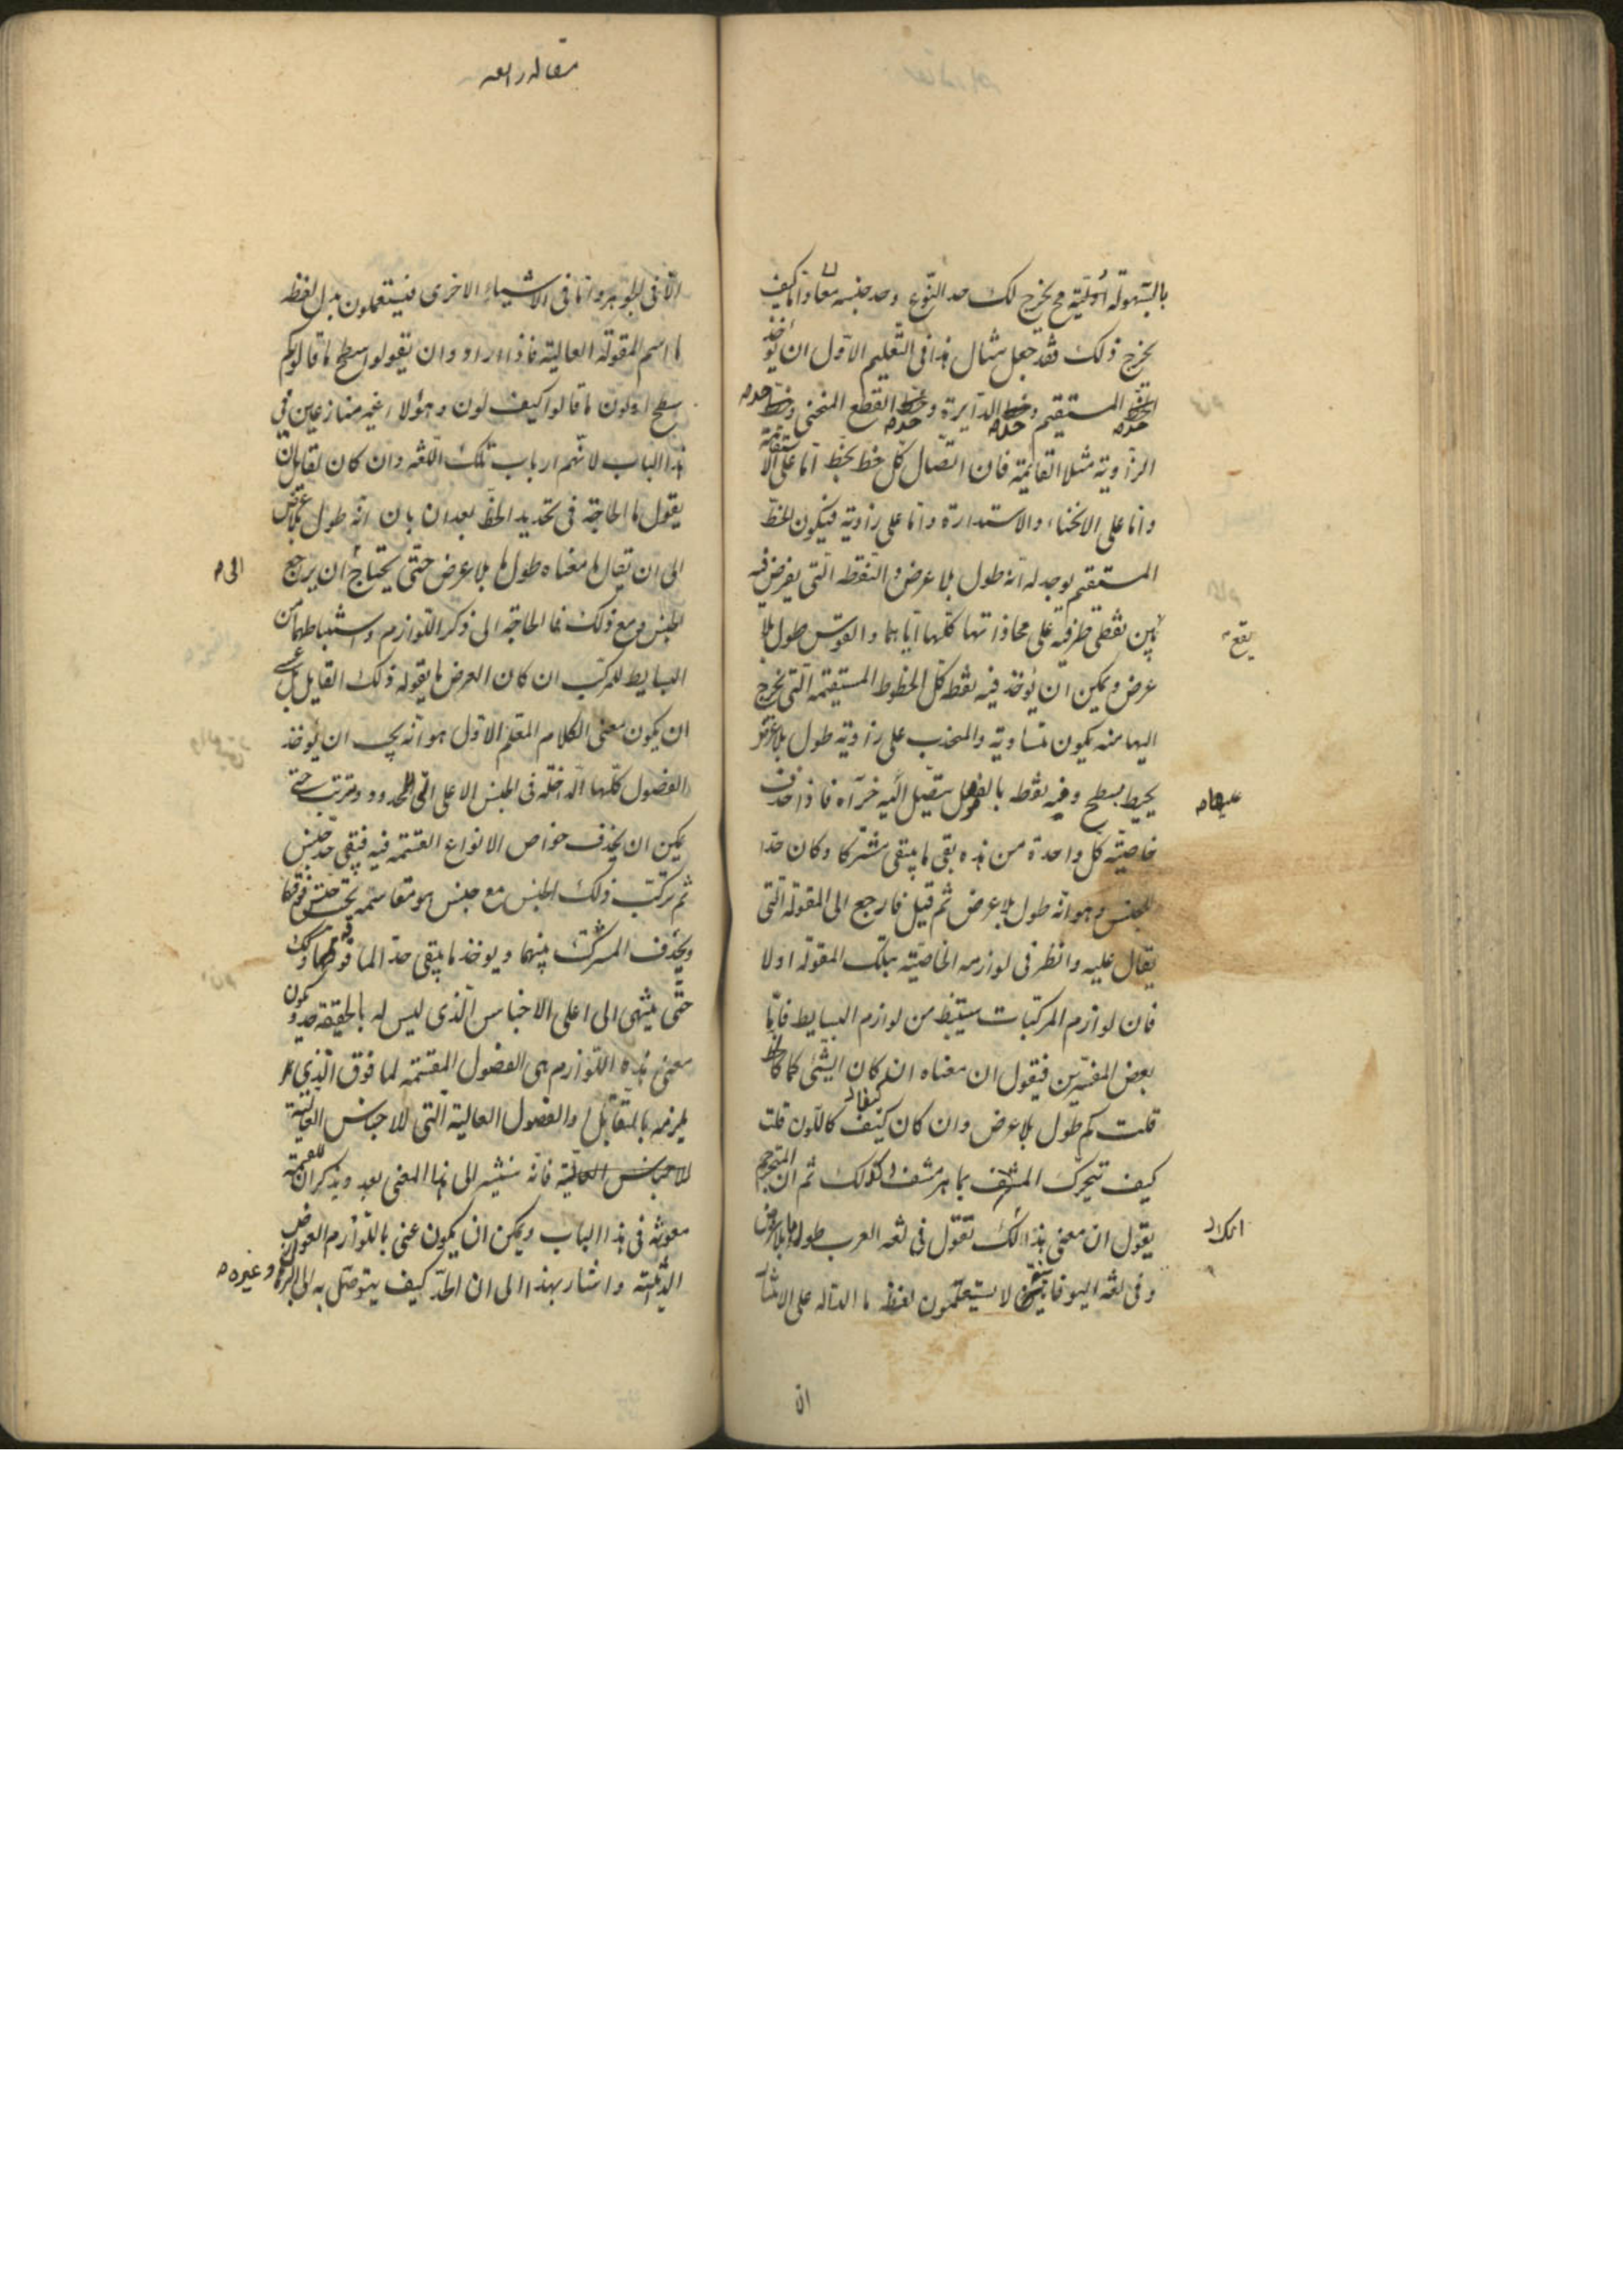 بالسهولة أولية مح يخرج لك حد النوع وحد جنسه معا واما كيف
يخرج ذلك فقد جعل مثال هذا فى التعليم الاول ان يؤخذ
المستقيم وخط الدايرة وخط القطع المنحنى وخط
الزاوية مثلا القايمة فان اتصال كل خط بخط اما على الاستقامة
واما على الانحناء والاستدارة واما على زاوية فيكون الخط
المستقيم يوجد له انه طول بلا عرض والنقطة التى يفرض فيه
بين نقطتى طرفيه على محاذاتها كلها اياهما والقوس طول بلا
يقع
عرض ويمكن ان يؤخذ فيه نقطة كل الخطوط المستقيمة التى تخرج
اليها منه يكون متساوية والمنحدب على زاوية طول بلا عرض
يحيط بسطح وفيه نقطة بالفعل يتصل اليه جزآه فاذا حذف
عليها
خاصية كل واحدة من هذه بقى ما يبقى مشتركا وكان حدا
للجنس وهو انه طول بلا عرض ثم قيل فارجع الى المقولة التى
يقال عليه وانظر فى لوازمه الخاصية بتلك المقولة اولا
فان لوازم المركبات يستنبط من لوازم البسايط فاما
بعض المفسرين فيقول ان معناه انه ان كان الشئ كما كالخط
قلت كم طول بلا عرض وان كان كيفا كاللون قلت
كيف تتحرك المشف بما هو مشف وكذلك ثم ان المترجم
يقول ان معنى هذا انك تقول فى لغة العرب طول ما بلا عرض
انك
وفى لغة اليونانيين لا يستعملون لفظة ما الدالة على الاشياء
ان
مقاله رابعه
الا فى الجوهر واما فى الاشياء الاخرى فيستعملون بدل لفظة
ما اسم المقولة العالية فاذا ارادوا ان يقولوا سطح ما قالوا كم
سطح او لون ما قالوا كيف لون وهؤلاء غير منازعين فى
هذا الباب لانهم ارباب تلك اللغة وان كان لقايل ان
يقول ما الحاجة فى تحديد الخط بعد ان بان انه طول بلا عرض
الى ان يقال ما معناه طول ما بلا عرض حتى يحتاج ان يرجع
الى
الجنس ومع ذلك فما الحاجة الى ذكر اللوازم واستنباطها من
البسايط للمركب ان كان الغرض ما يقوله ذلك القايل بل عسى
ان يكون معنى الكلام المعلم الاول هو انه يجب ان يؤخذ
الفصول كلها الداخلة فى الجنس الاعلى الى المحدود وترتب حتى
يمكن ان يحذف خواص الانواع القسمة فيه فيبقى حد جنس
ثم تركب ذلك الجنس مع جنس هو مقاسمه تحت جنس فوقهما
ويحذف المشترك بينهما ويوخذ ما يبقى حد الما فوقهما وكذلك
حتى ينتهى الى اعلى الاجناس الذى ليس له بالحقيقة حد ويكون
معنى هذه اللوازم هى الفصول المقسمة لما فوق الذى
يلزمه بالتقابل والفصول العالية التى للاجناس العالية
للاجناس العالية فانه سنشير الى هذا المعنى بعد ويذكر ان القسمة
معونة فى هذا الباب ويمكن ان يكون عنى باللوازم العوارض
الذاتية واشار بهذا الى ان الحد كيف يتوصل به الى البرهان وغيره